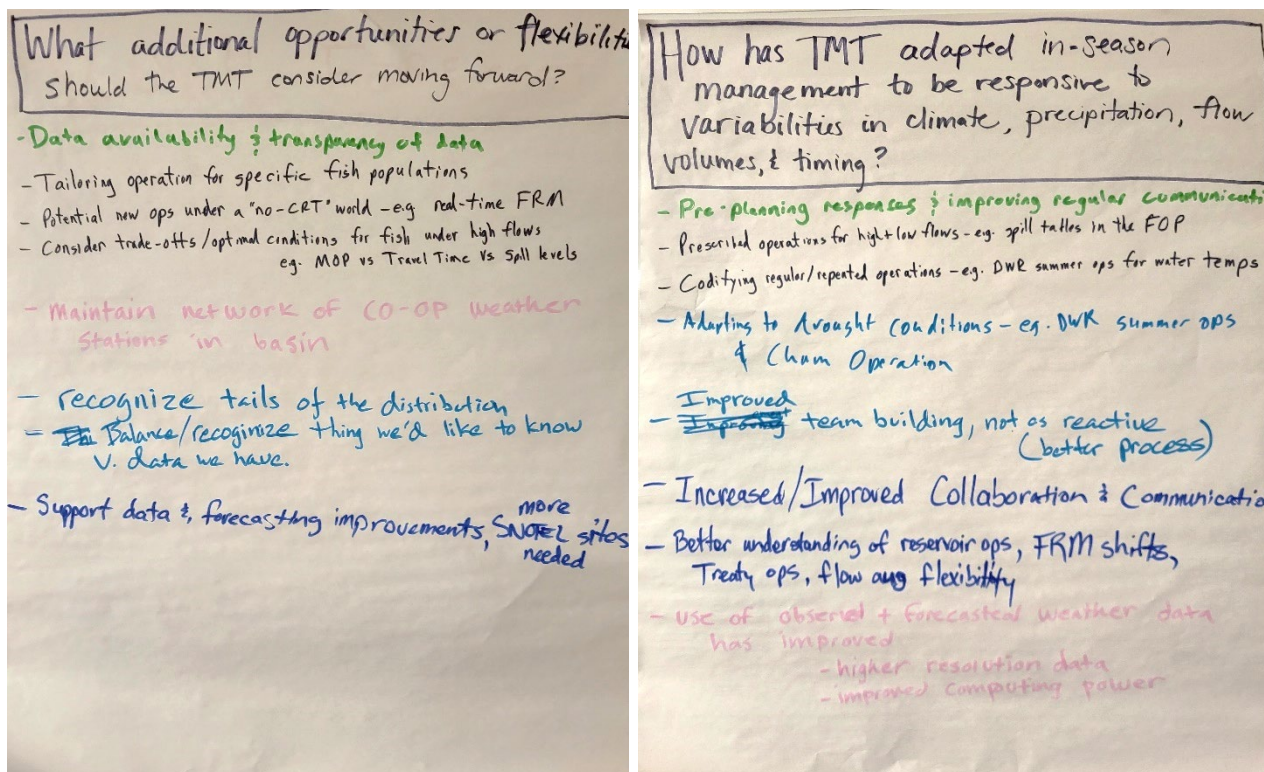 What additional opportunities or flexibiliti
should the TMT consider moving forward?
- Data availability & transparency of data
- Tailoring operation for specific fish populations
- Potential new ops under a "no-CRT" world - e.g. real-time FRM
- Consider trade-offs/optimal conditions for fish under high flows
eg. MOP vs Travel Time vs Spill levels
- Maintain network of CO-OP weather
stations in basin
- recognize tails of the distribution
- Balance/recoginize thing we'd like to know
v. data we have.
- Support data &, forecasting improvements, more SNOTEL sites
needed
How has TMT adapted in-season
management to be responsive to
variabilities in climate, precipitation, flow
volumes, & timing?
- Pre-planning responses & improving regular communicati
- Prescribed operations for high+low flows - e.g. spill tables in the FOP
- Codifying regular/repeated operations - e.g. DWR summer ops for water temps
- Adapting to drought conditions - eg. DWR summer ops
& Chum Operation
Improved
- Improving team building, not as reactive
(better process)
- Increased/Improved Collaboration & Communicatio
- Better understanding of reservoir ops, FRM shifts,
Treaty ops, flow aug flexibility
- use of observed + forecasted weather data
has improved
- higher resolution data
- improved computing power